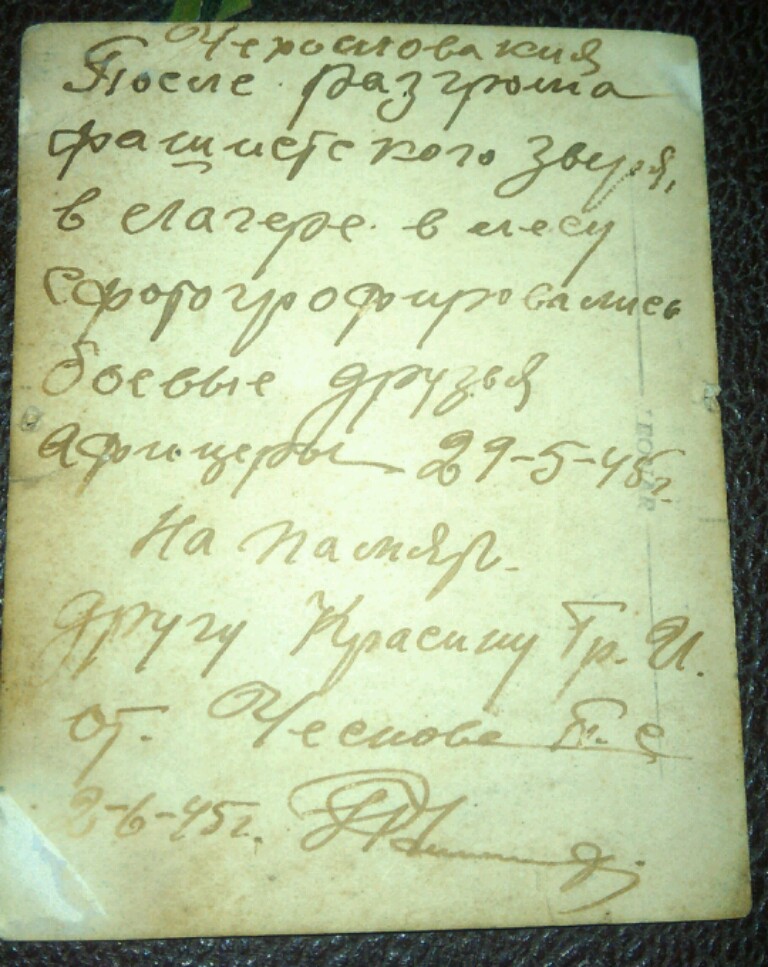 Чехословакия
После разгрома
фашистского зверя,
в лагере в лесу
сфотогрофировались
боевые друзья
афицеры 29-5-45г.
На память
другу Красину Гр. И.
от. Чеснова П. С
2-6-45г.